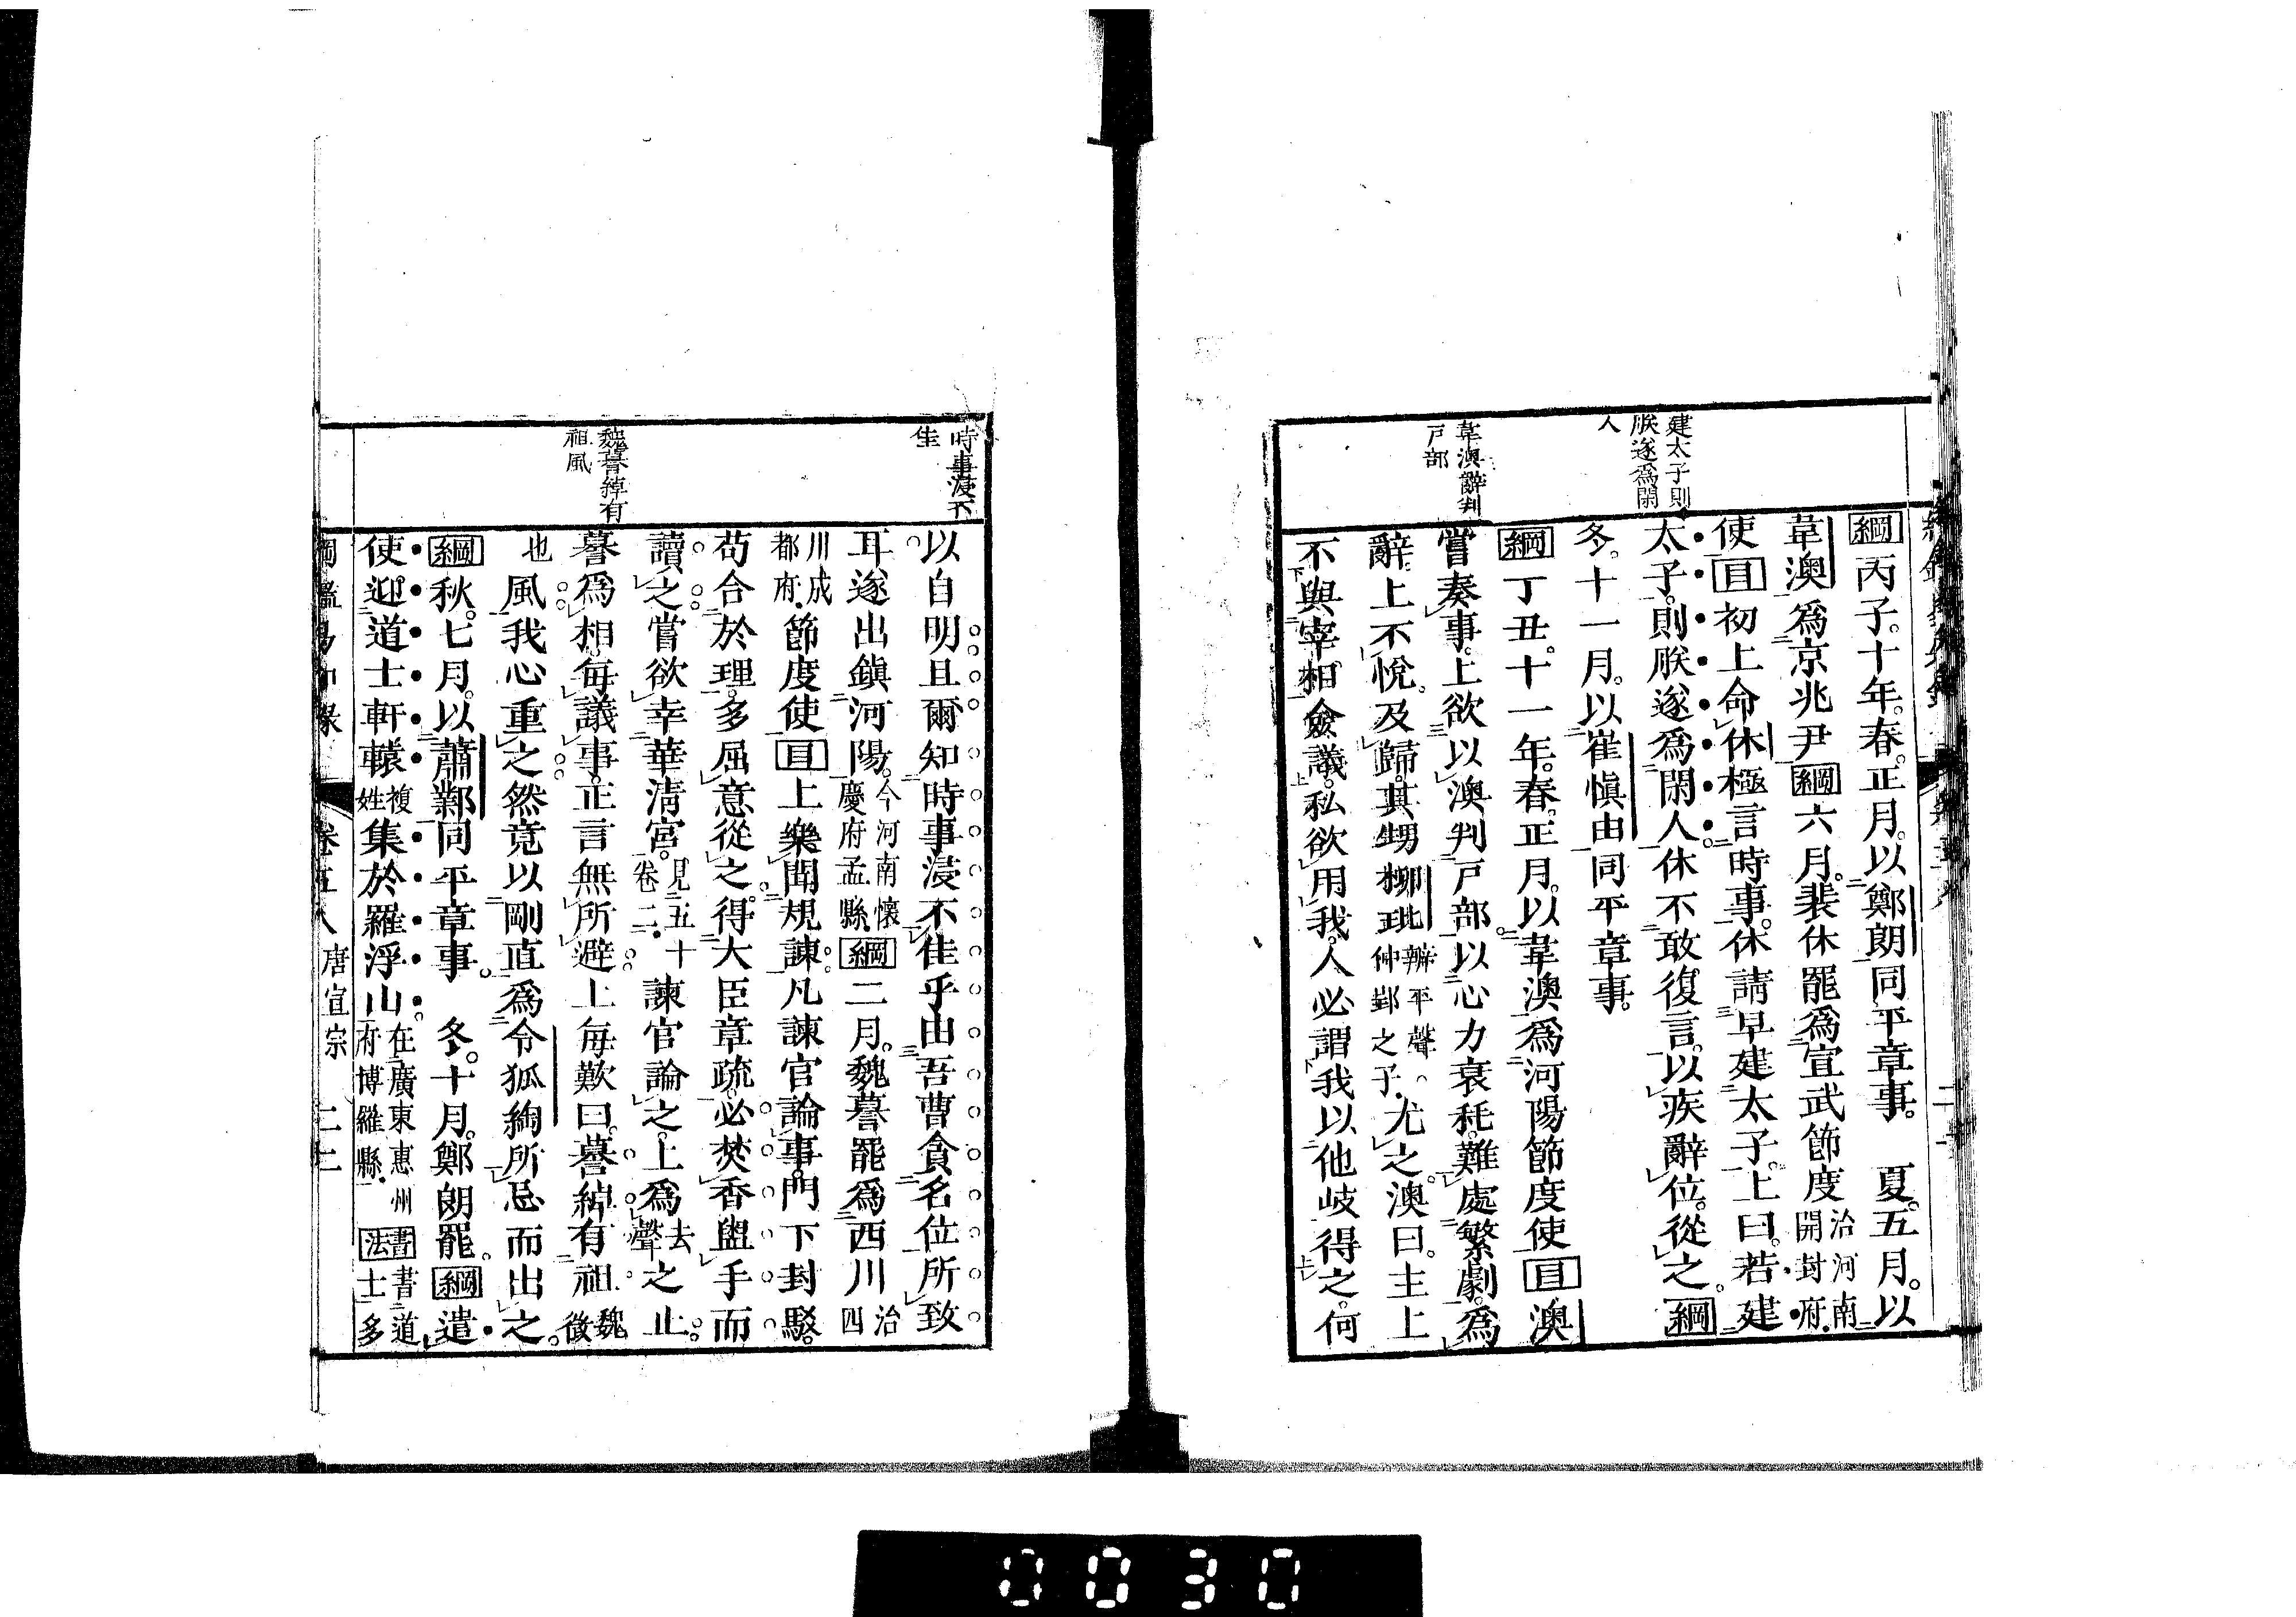 建太子則
朕遂爲閑
人
韋澳辭判
戸部
綱丙子十年。春。正月。以鄭朗同平章事。　夏。五月。以
韋澳爲京兆尹綱六月。裴休罷爲宣武節度治河南開封府.
使目初上命休極言時事。休請早建太子。上曰。若建
太子。則朕遂爲閑人。休不敢復言。以疾辭位。從之。綱
冬。十一月。以崔愼由同平章事。
綱丁丑。十一年。春。正月。以韋澳爲河陽節度使目澳
嘗奏事。上欲以澳判戸部。以心力衰秏。難處繁劇。爲
辭。上不悅。及歸。其甥柳玭玭辦平聲。仲郢之子.尤之。澳曰。主上
不與宰相僉議。私欲用我。人必謂我以他岐得之。何
時事浸不
佳
魏謩綽有
祖風
以自明。且爾知時事浸不佳乎。由吾曹貪名位所致
耳。遂出鎭河陽。今河南懷慶府孟縣.綱二月。魏謩罷爲西川治四
川成都府.節度使目上樂聞規諫。凡諫官論事。門下封駁。
苟合於理。多屈意從之。得大臣章疏。必焚香盥手而
讀之。嘗欲幸華淸宮。見五十卷二.諫官論之。上爲去聲之止。
謩爲相。每議事。正言無所避。上每歎曰。謩綽有祖魏徵
也風。我心重之。然竟以剛直爲令狐綯所忌而出之。
綱秋。七月。以蕭鄴同平章事。　冬。十月。鄭朗罷。綱遣
使迎道士軒轅複姓集於羅浮山。在廣東惠州府博羅縣.書法書道士多
卷五八　唐宣宗　二十二
0030